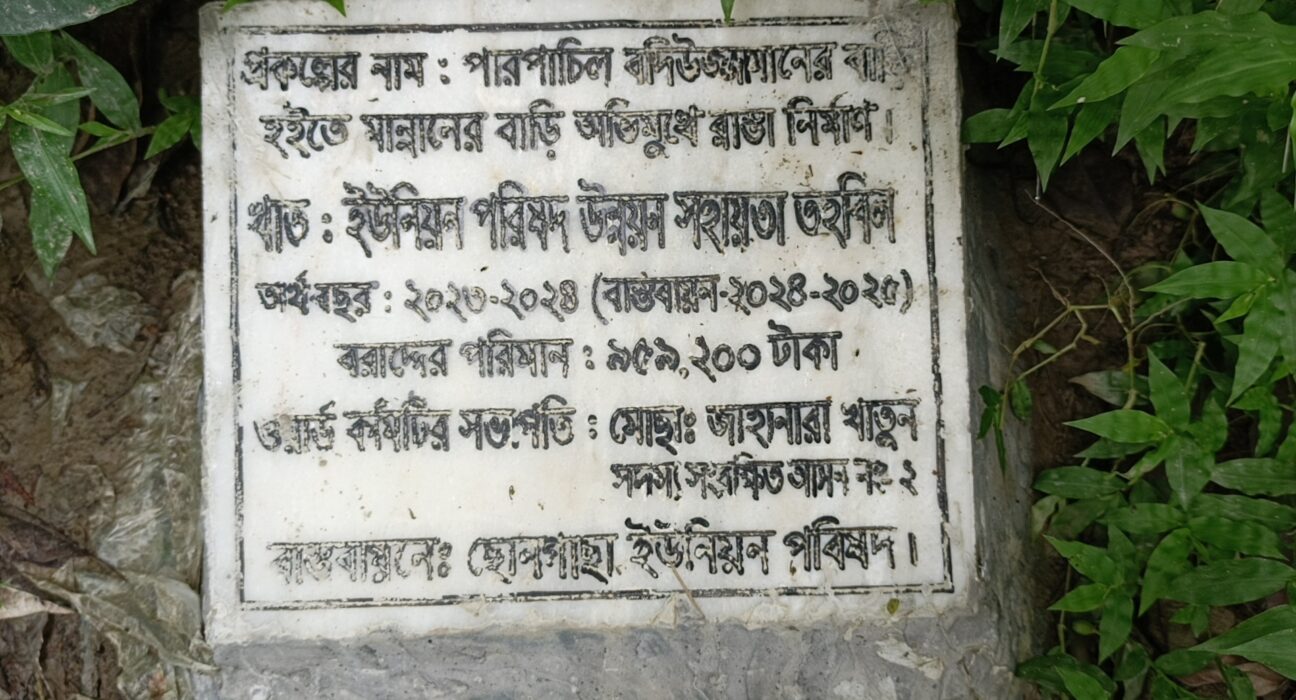 প্রকল্পের নাম : পারপাচিল বদিউজ্জামানের বাড়ি
হইতে মান্নানের বাড়ি অভিমুখে রাস্তা নির্মাণ।
খাত : ইউনিয়ন পরিষদ উন্নয়ন সহায়তা তহবিল
অর্থ বছর : ২০২৩-২০২৪ (বাস্তবায়ন-২০২৪-২০২৫)
বরাদ্দের পরিমান : ৯৫৯,২০০ টাকা
ওয়ার্ড কমিটির সভাপতি : মোছাঃ জাহানারা খাতুন
সদস্য সংরক্ষিত আসন নং- ২
বাস্তবায়নেঃ ছোনগাছা ইউনিয়ন পরিষদ।